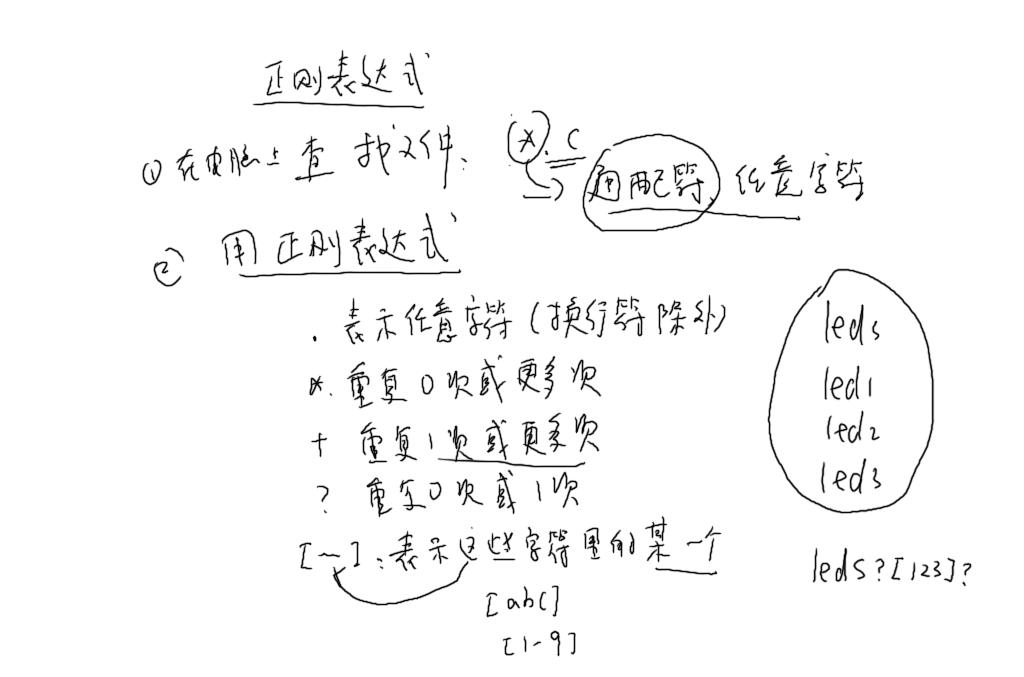 正则表达式
① 在电脑上查找文件: *.c
→ 通配符 任意字符
② 用正则表达式
. 表示任意字符(换行符除外)
* 重复0次或更多次
+ 重复1次或更多次
? 重复0次或1次
[~]:表示这些字符里的某一个
[abc]
[1-9]
leds
led1
led2
led3
leds?[123]?